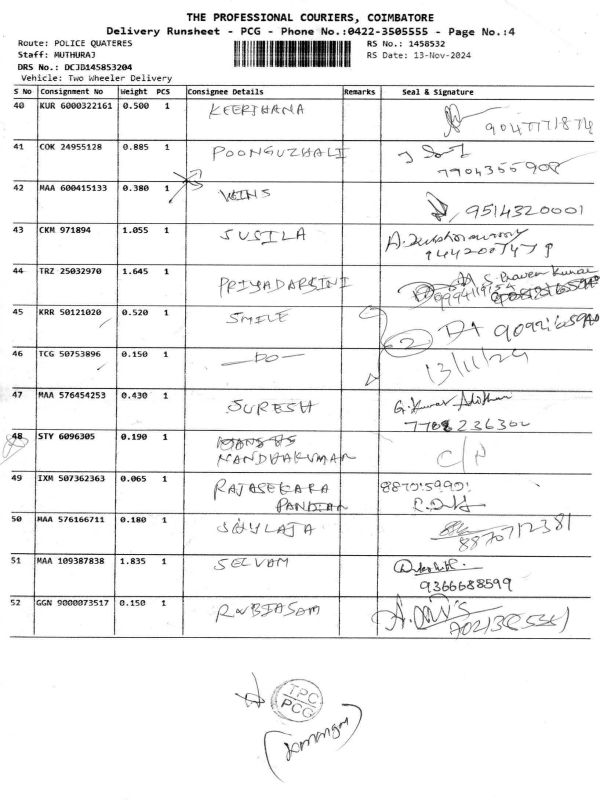 THE PROFESSIONAL COURIERS, COIMBATORE
Delivery Runsheet - PCG - Phone No.:0422-3505555 - Page No.:4
Route: POLICE QUATERES RS No.: 1458532
Staff: MUTHURAJ RS Date: 13-Nov-2024
DRS No.: DCJD145853204
Vehicle: Two Wheeler Delivery
S No Consignment No Weight PCS Consignee Details Remarks Seal & Signature
40 KUR 6000322161 0.500 1 KEERTHANA
9047771874
41 COK 24955128 0.885 1 POONGUZHALI
7904355908
42 MAA 600415133 0.380 1 WINS 9514320001
43 CKM 971894 1.055 1 SUSILA
44 TRZ 25032970 1.645 1 PRIYADARSINI
45 KRR 50121020 0.520 1 SMILE
2
46 TCG 50753896 0.150 1 -DO- 13/11/24
47 MAA 576454253 0.430 1 SURESH G. Kumar
7708236300
48 STY 6096305 0.190 1
NANDHAKUMAR
49 IXM 507362363 0.065 1 RAJASEKARA
PANDIAN
50 MAA 576166711 0.180 1
8870712381
51 MAA 109387838 1.835 1 SELVAM
9366688599
52 GGN 9000073517 0.150 1
TPC
PCG